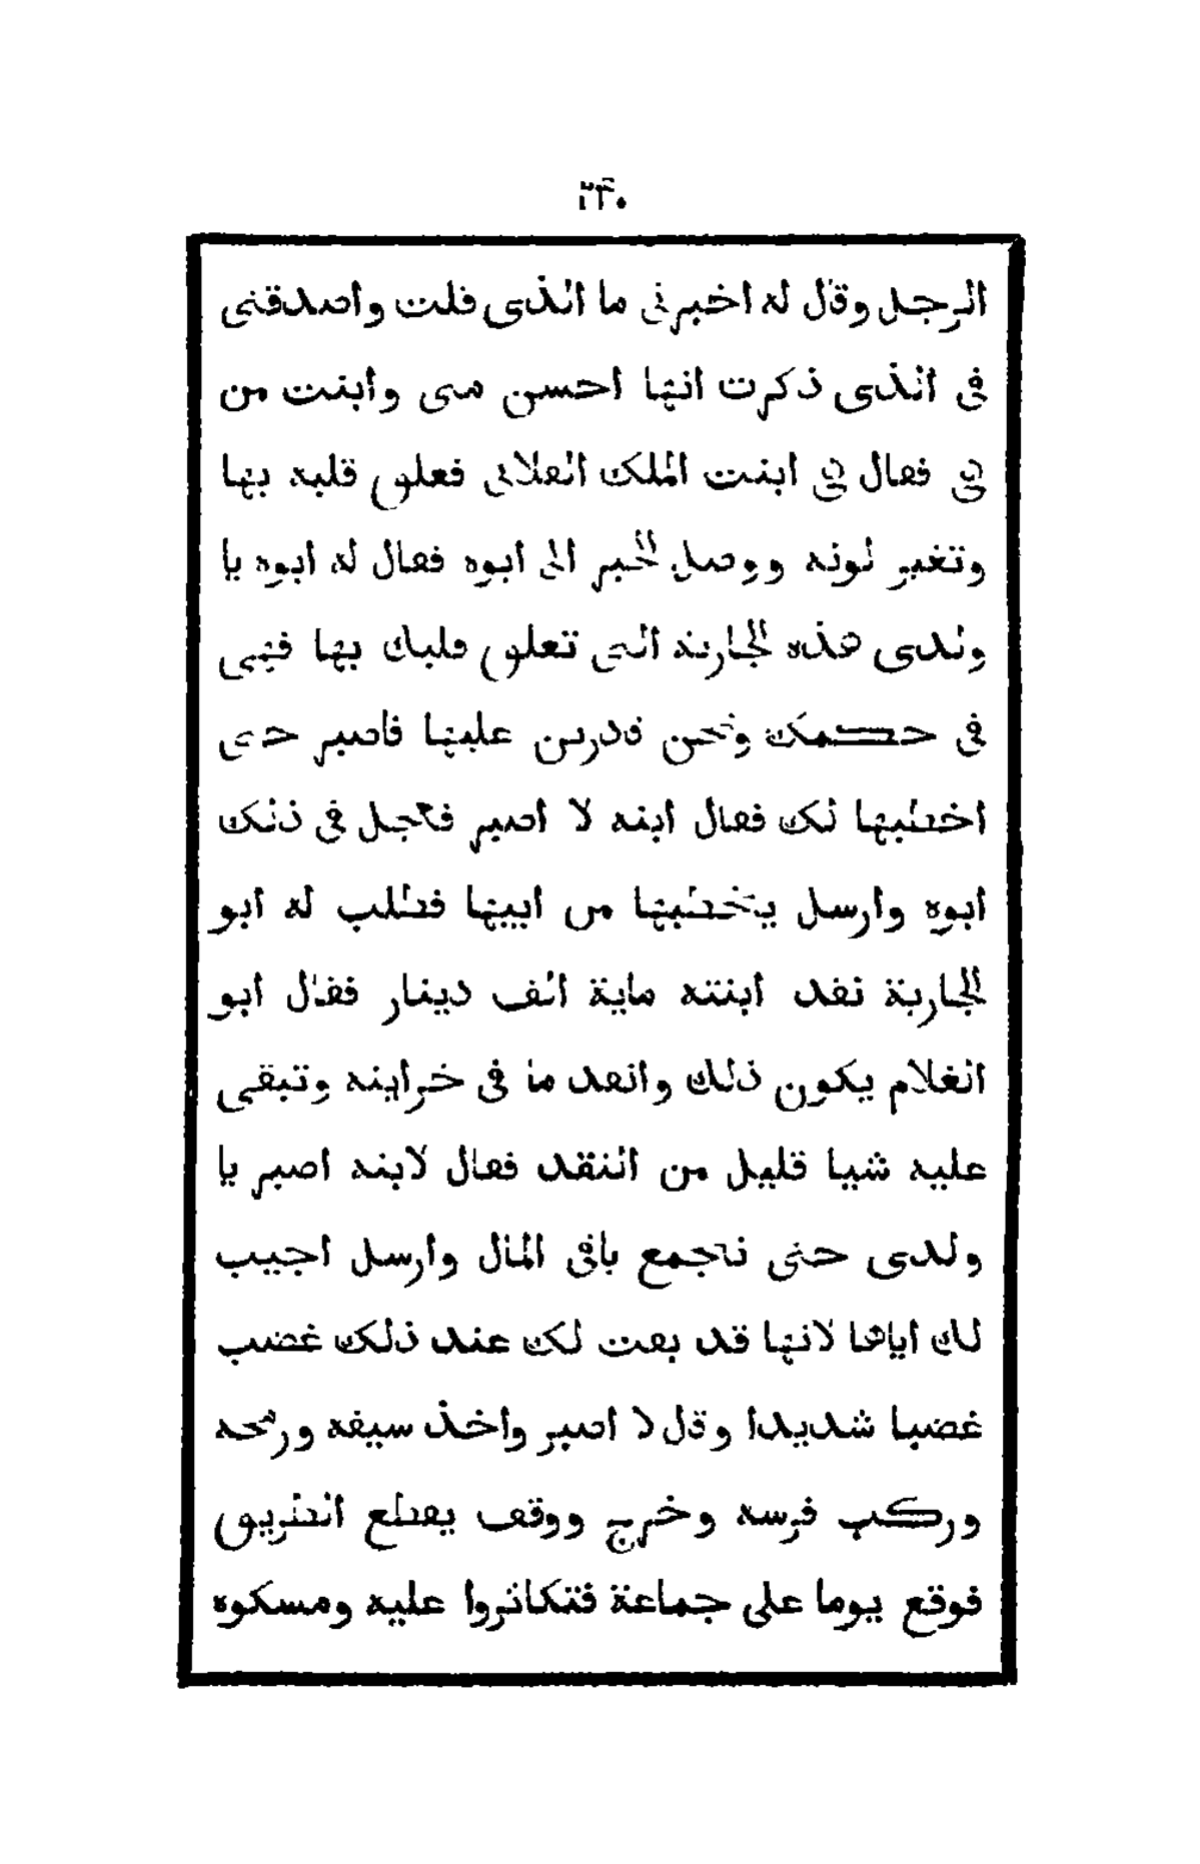 الرجل وقال له اخبرنى ما الذى قلت واصدقنى
فى الذى ذكرت انها احسن منى وابنت من
هى فقال هى ابنت الملك الفلانى فعلق قلبه بها
وتغير لونه ووصل الخبر الى ابوه فقال له ابوه يا
ولدى هذه الجارية التى تعلق قلبك بها فهى
فى حكمك ونحن قادرين عليها فاصبر حتى
اخطبها لك فقال ابنه لا اصبر فعجل فى ذلك
ابوه وارسل يخطبها من ابيها فطلب له ابو
الجارية نقد ابنته ماية الف دينار فقال ابو
الغلام يكون ذلك وانقد ما فى خزاينه وتبقى
عليه شيا قليل من النقد فقال لابنه اصبر يا
ولدى حتى نجمع باقى المال وارسل اجيب
لك اياها لانها قد بقت لك عند ذلك غضب
غضبا شديدا وقال لا اصبر واخذ سيفه ورمحه
وركب فرسه وخرج ووقف يقطع الطريق
فوقع يوما على جماعة فتكاثروا عليه ومسكوه